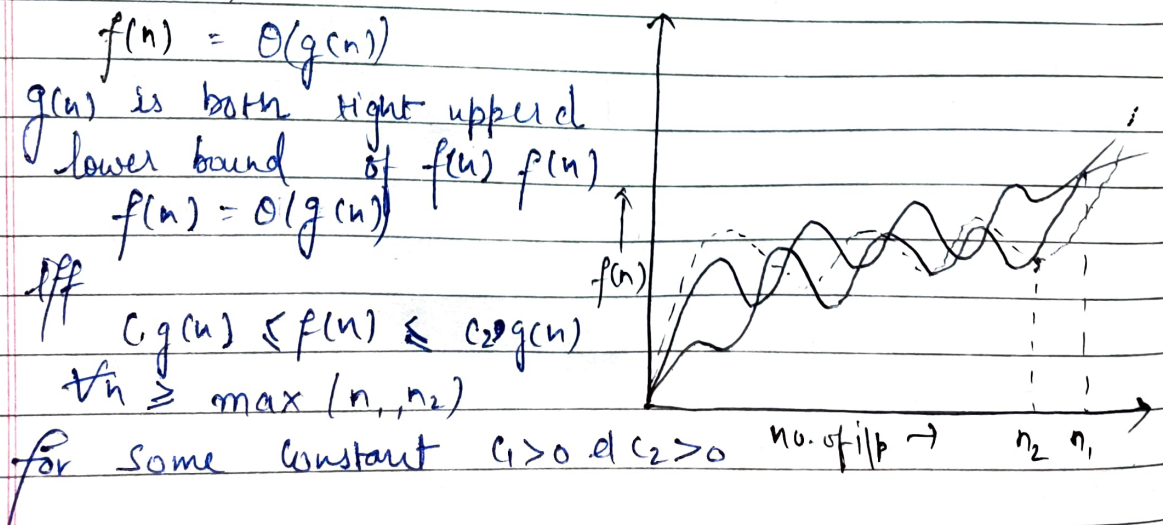 f(n) = θ(g(n))
g(n) is both tight upper &
lower bound of f(n) f(n)
f(n) = θ(g(n))
iff
C₁g(n) ≤ f(n) ≤ C₂g(n)
∀n ≥ max (n₁, n₂)
for some constant C₁>0 & C₂>0
f(n)
no. of i/p → n₂ n₁